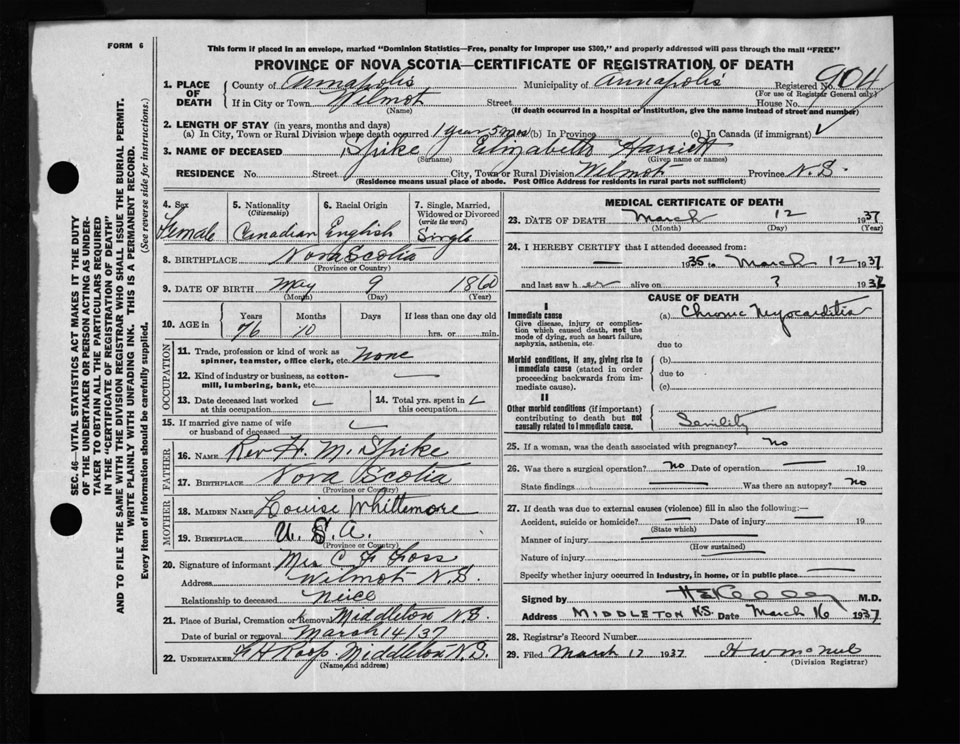 FORM 6
This form if placed in an envelope, marked "Dominion Statistics—Free, penalty for improper use $300," and properly addressed will pass through the mail "FREE"
PROVINCE OF NOVA SCOTIA—CERTIFICATE OF REGISTRATION OF DEATH
SEC. 46—VITAL STATISTICS ACT MAKES IT THE DUTY
OF THE UNDERTAKER OR PERSON ACTING AS UNDER-
TAKER TO OBTAIN ALL THE PARTICULARS REQUIRED
IN THE "CERTIFICATE OF REGISTRATION OF DEATH"
AND TO FILE THE SAME WITH THE DIVISION REGISTRAR WHO SHALL ISSUE THE BURIAL PERMIT.
WRITE PLAINLY WITH UNFADING INK. THIS IS A PERMANENT RECORD.
Every item of information should be carefully supplied. (See reverse side for instructions.)
1. PLACE OF DEATH County of Annapolis Municipality of Annapolis Registered No. 904
(For use of Registrar General only)
If in City or Town Wilmot Street House No.
(If death occurred in a hospital or institution, give the name instead of street and number)
2. LENGTH OF STAY (in years, months and days)
(a) In City, Town or Rural Division where death occurred 1 year 5 mos (b) In Province (c) In Canada (if immigrant) ✓
3. NAME OF DECEASED Spike Elizabeth Harriett
(Surname) (Given name or names)
RESIDENCE No. Street City, Town or Rural Division Wilmot Province N.S.
(Residence means usual place of abode. Post Office Address for residents in rural parts not sufficient)
4. Sex Female
5. Nationality (Citizenship) Canadian
6. Racial Origin English
7. Single, Married, Widowed or Divorced (write the word) Single
8. BIRTHPLACE Nova Scotia
(Province or Country)
9. DATE OF BIRTH May 9 1860
(Month) (Day) (Year)
10. AGE in Years Months Days If less than one day old
76 10 hrs. or min.
OCCUPATION
11. Trade, profession or kind of work as spinner, teamster, office clerk, etc. None
12. Kind of industry or business, as cotton-mill, lumbering, bank, etc. —
13. Date deceased last worked at this occupation
14. Total yrs. spent in this occupation
15. If married give name of wife or husband of deceased
FATHER
16. NAME Rev H. M. Spike
17. BIRTHPLACE Nova Scotia
(Province or Country)
MOTHER
18. MAIDEN NAME Louise Whittemore
19. BIRTHPLACE U. S. A.
(Province or Country)
20. Signature of informant Mrs C F Goss
Address Wilmot N.S.
Relationship to deceased Neice
21. Place of Burial, Cremation or Removal Middleton N.S.
Date of burial or removal March 14/37
22. UNDERTAKER Roop Middleton N.S.
(Name and address)
MEDICAL CERTIFICATE OF DEATH
23. DATE OF DEATH March 12 1937
(Month) (Day) (Year)
24. I HEREBY CERTIFY that I attended deceased from:
— 1935 to March 12 1937
and last saw her alive on ? 193
CAUSE OF DEATH
I
Immediate cause
Give disease, injury or complication which caused death, not the mode of dying, such as heart failure, asphyxia, asthenia, etc.
(a) Chronic Myocarditis
due to
Morbid conditions, if any, giving rise to immediate cause (stated in order proceeding backwards from immediate cause).
(b)
due to
(c)
II
Other morbid conditions (if important) contributing to death but not causally related to immediate cause.
Senility
25. If a woman, was the death associated with pregnancy? No
26. Was there a surgical operation? No Date of operation — 19
State findings — Was there an autopsy? No
27. If death was due to external causes (violence) fill in also the following:—
Accident, suicide or homicide? — Date of injury 19
(State which)
Manner of injury
(How sustained)
Nature of injury
Specify whether injury occurred in industry, in home, or in public place
Signed by M.D.
Address MIDDLETON N.S. Date March 16 1937
28. Registrar's Record Number
29. Filed March 17 1937
(Division Registrar)